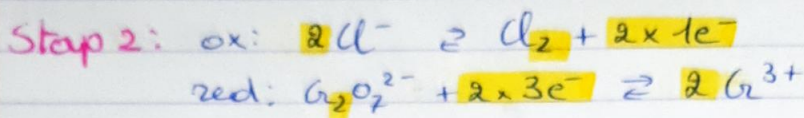 Stap 2: ox: 2Cl⁻ ⇄ Cl₂ + 2 x 1e⁻
red: Cr₂O₇²⁻ + 2 x 3e⁻ ⇄ 2 Cr³⁺